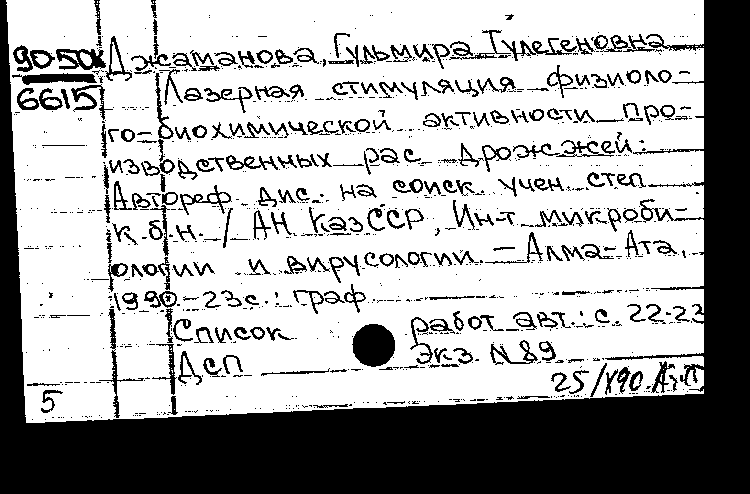 90-50к Джаманова, Гульмира Тулегеновна
6615 Лазерная стимуляция физиоло-
го-биохимической активности про-
изводственных рас дрожжей:
Автореф. дис. на соиск. учен. степ.
к.б.н. / АН КазССР, Ин-т микроби-
ологии и вирусологии. - Алма-Ата,
1990.-23с.: граф.
Список работ авт.: с. 22-23
ДСП Экз. N 89
5 25/X90